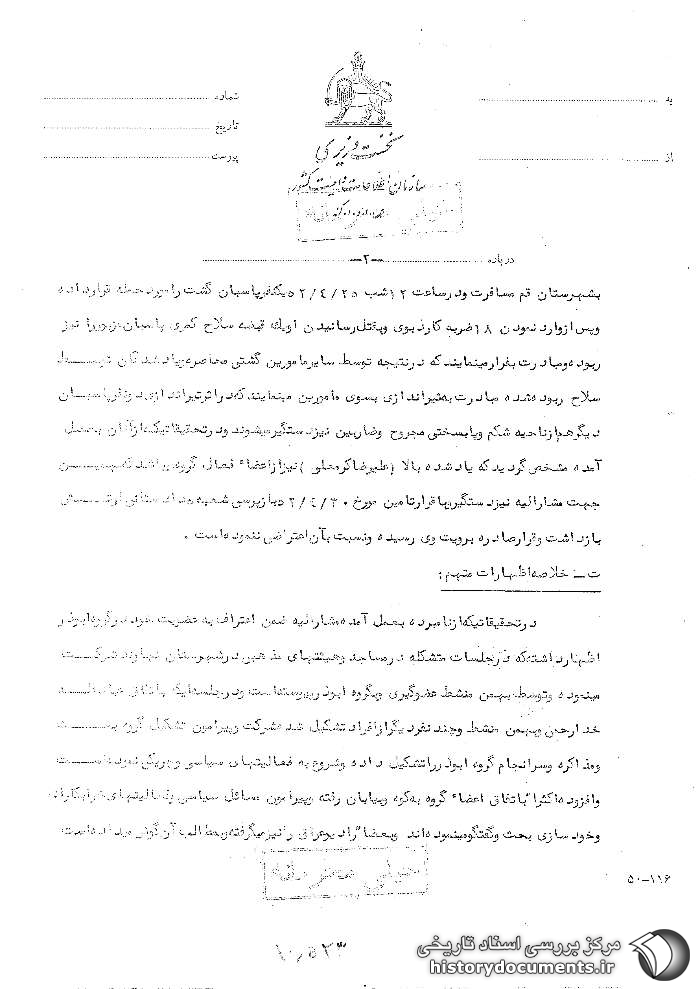 به
شماره
تاریخ
از
پیوست
نخست وزیری
سازمان اطلاعات و امنیت کشور
خیلی محرمانه
درباره -۲-
بشهرستان قم مسافرت ودرساعت ۱۲شب ۵۲/۴/۲۵ یکنفرپاسبان گشت رامورد حمله قرارداده
وپس ازوارد نمودن ۱۸ضربه کارد بوی وبقتل رسانیدن اویک قبضه سلاح کمری پاسبان مزبوررا نیز
ربوده ومبادرت بفرارمینمایند که درنتیجه توسط سایرمامورین گشتی محاصره ویاد شدگان
سلاح ربوده شده مبادرت به تیراندازی بسوی مامورین مینمایند که دراثرتیراندازی دونفرپاسبان
دیگرهم ازناحیه شکم وپابسختی مجروح وضاربین نیزدستگیرمیشوند ودرتحقیقاتیکه ازآنان بعمل
آمده مشخص گردید که یاد شده بالا (علیرضاکرمعلی) نیزازاعضاء فعال گروه
جهت مشارالیه نیزدستگیروباقرارتامین مورخ ۵۲/۴/۳۰ بازپرسی شعبه دادستانی ارتش
بازداشت وقرارصادره برویت وی رسیده ونسبت بآن اعتراضی ننموده است .
ت- خلاصه اظهارات متهم :
درتحقیقاتیکه ازنامبرده بعمل آمده مشارالیه ضمن اعتراف به عضویت خود درگروه ابوذر
اظهارداشته که درجلسات متشکله درمساجد وهیئتهای مذهبی درشهرستان نهاوند شرکت
مینموده وتوسط بهمن منشط عضوگیری وبگروه ابوذرپیوسته است ودرجلسه ایکه باتفاق عباد اله
خدارحمی وبهمن منشط وچند نفردیگرازافراد تشکیل شده شرکت وپیرامون تشکیل گروه بحث
ومذاکره وسرانجام گروه ابوذرراتشکیل داده وشروع به فعالیتهای سیاسی وچریکی نموده است
وافزوده اکثرا" باتفاق اعضاء گروه به کوه وبیابان رفته وپیرامون مسائل سیاسی وفعالیتهای خرابکارانه
وخود سازی بحث وگفتگومینموده اند وبعضا" رادیوعراق رانیزمیگرفته وبمطالب آن گوش میداده است
خیلی محرمانه
۵۰-۱۱۶
۱۰،۵۲۳
مرکز بررسی اسناد تاریخی
historydocuments.ir